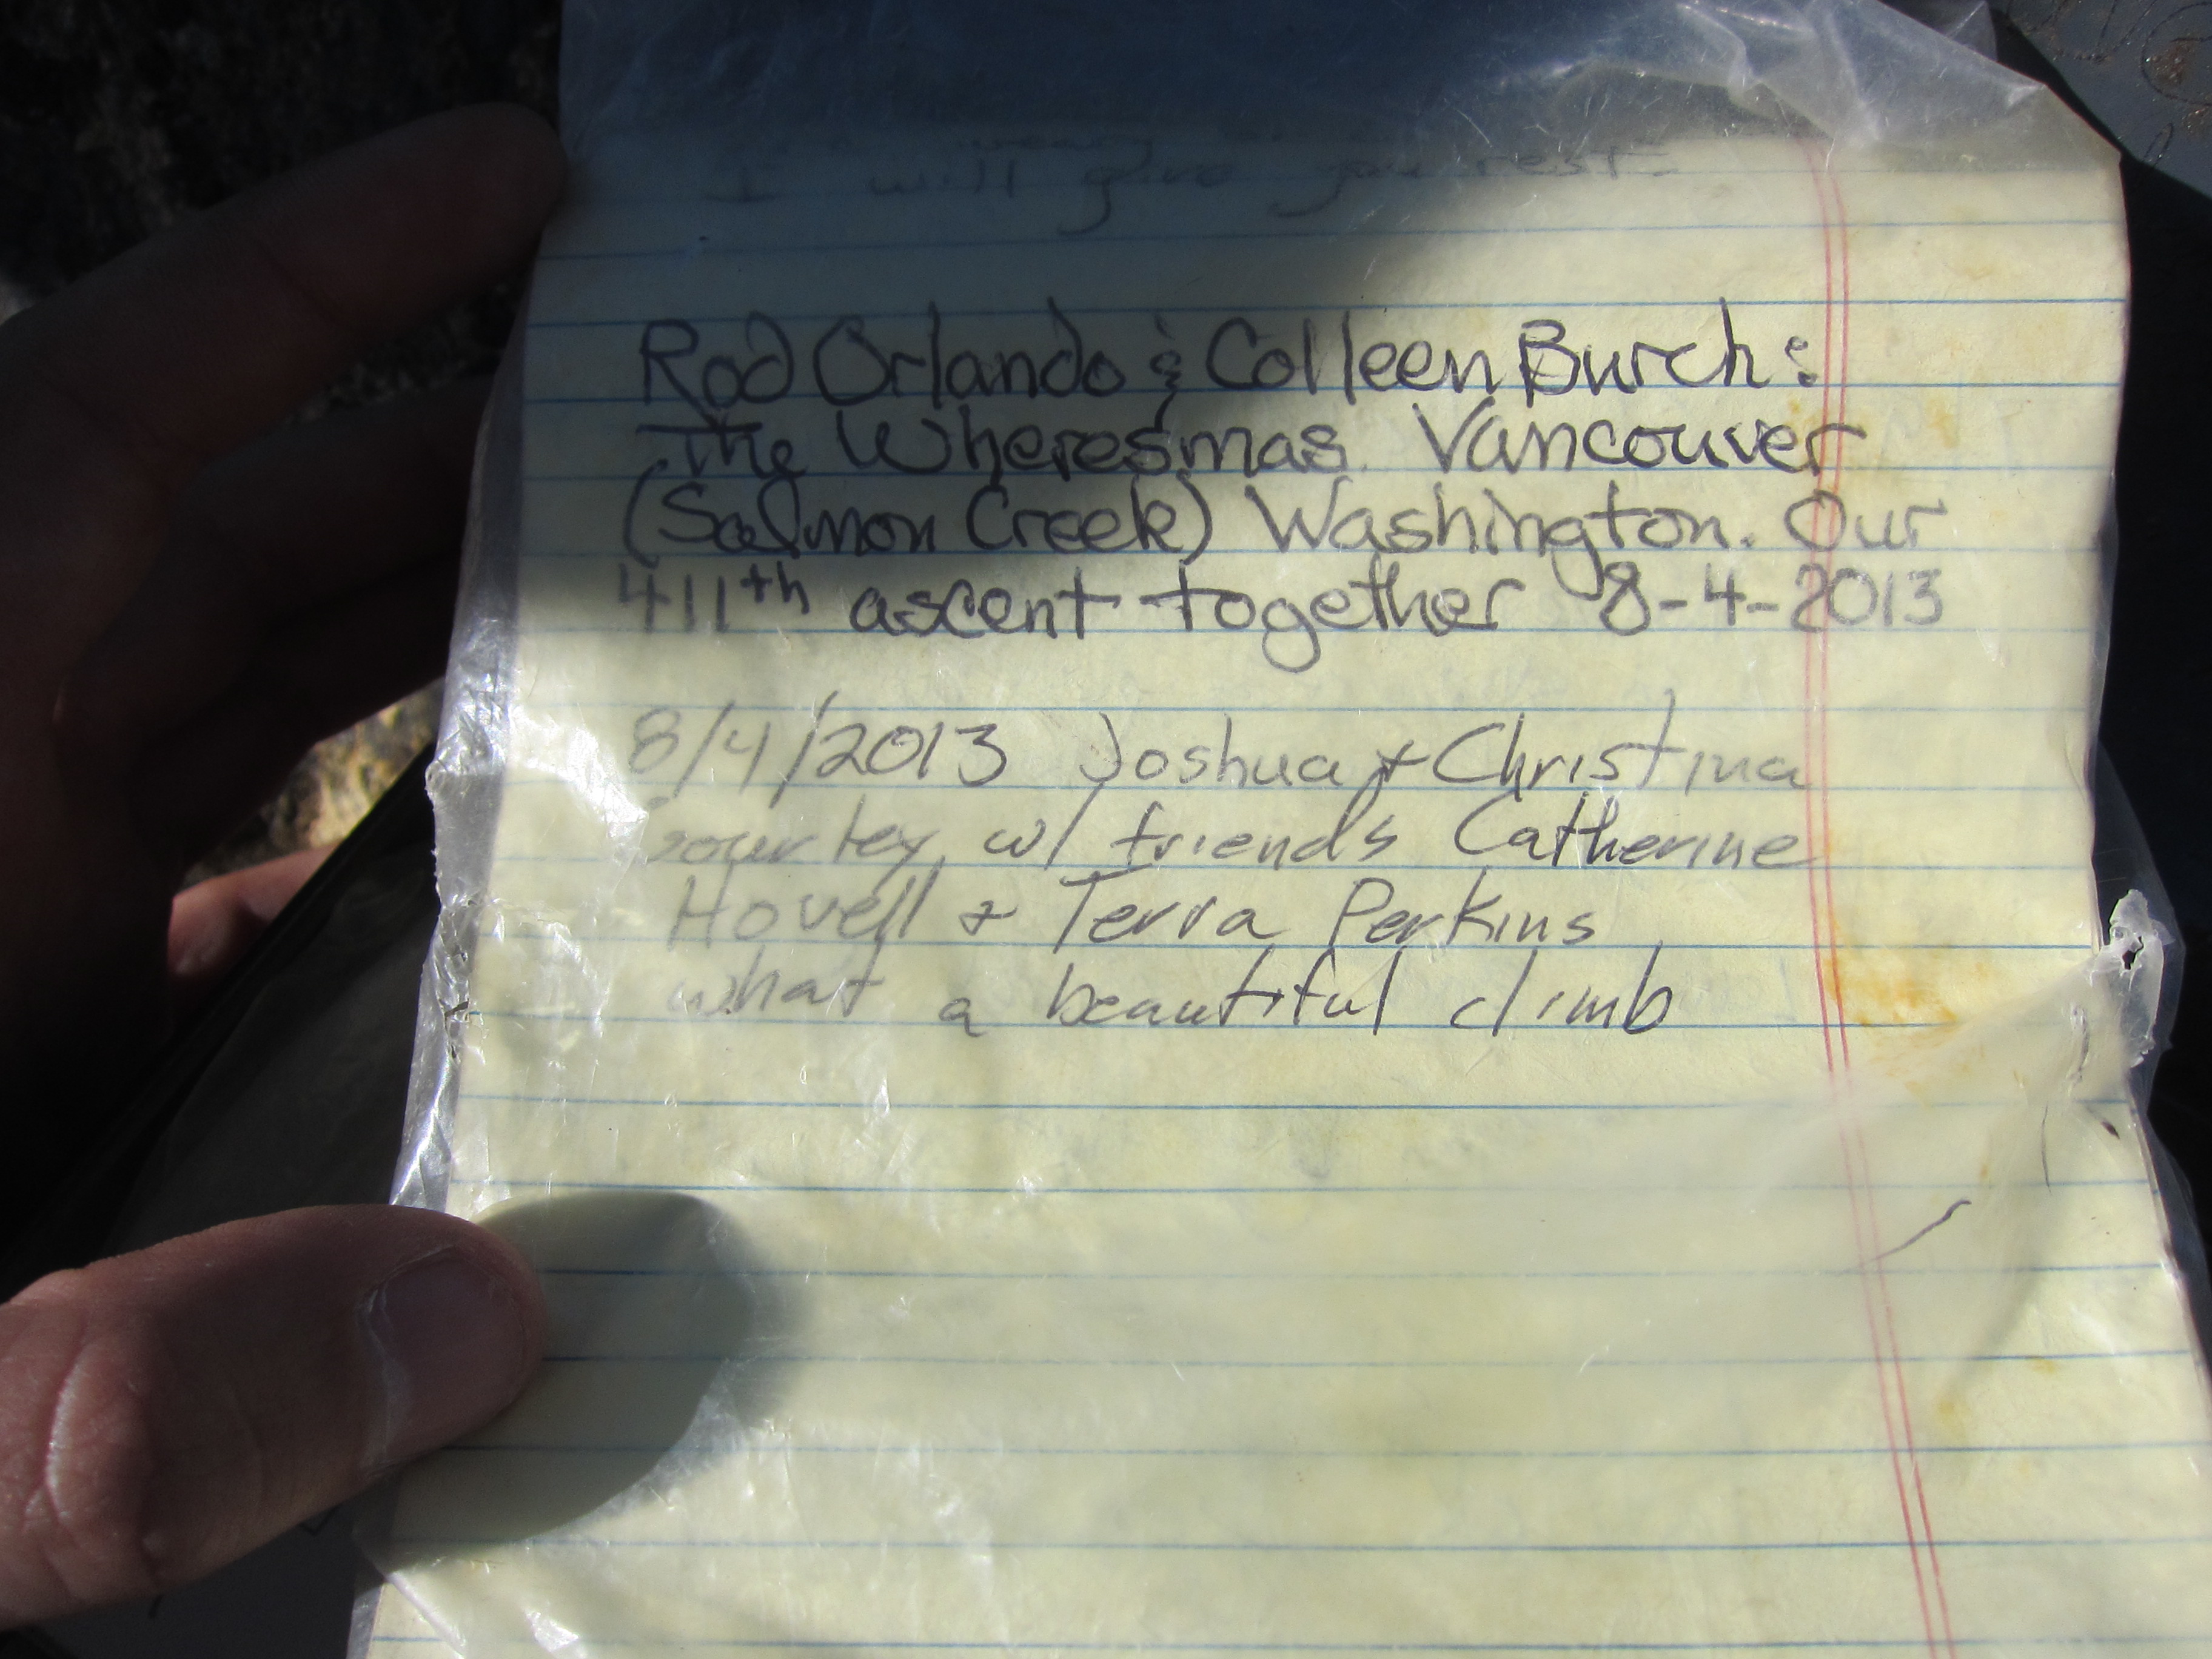 weary
I will give you rest
Rod Orlando & Colleen Burch:
The Wheresmas. Vancouver
(Salmon Creek) Washington. Our
411th ascent together 8-4-2013
8/4/2013 Joshua & Christina
w/ friends Catherine
Hovell & Terra Perkins
what a beautiful climb